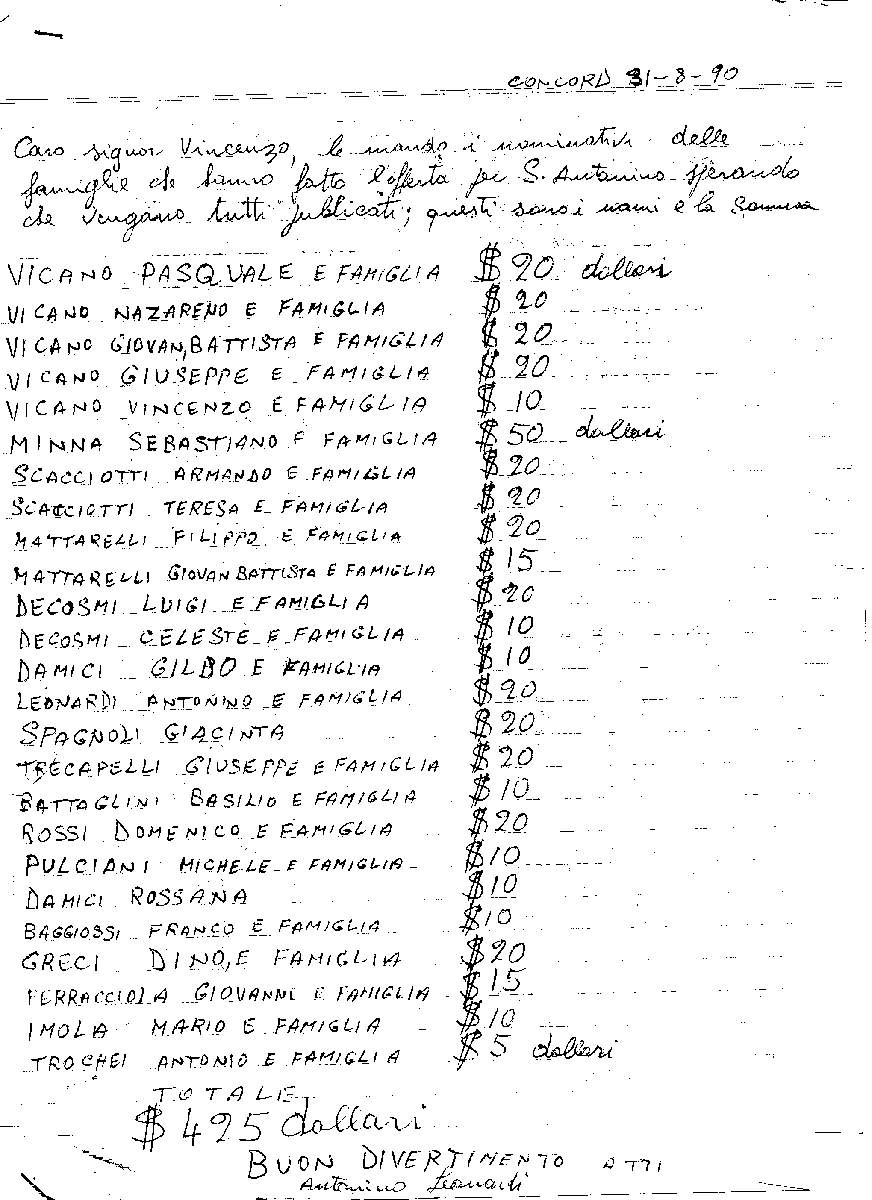 CONCORD 31-8-90
Caro signor Vincenzo, le mando i nominativi delle
famiglie che hanno fatto l'offerta per S. Antonino sperando
che vengano tutti publicati; questi sono i nomi e la somma
VICANO PASQUALE E FAMIGLIA $ 20 dollari
VICANO NAZARENO E FAMIGLIA $ 20
VICANO GIOVAN,BATTISTA E FAMIGLIA $ 20
VICANO GIUSEPPE E FAMIGLIA $ 20
VICANO VINCENZO E FAMIGLIA $ 10
MINNA SEBASTIANO E FAMIGLIA $ 50 dollari
SCACCIOTTI ARMANDO E FAMIGLIA $ 20
SCACCIOTTI TERESA E FAMIGLIA $ 20
MATTARELLI FILIPPO E FAMIGLIA $ 20
MATTARELLI GIOVAN BATTISTA E FAMIGLIA $ 15
DECOSMI LUIGI E FAMIGLIA $ 20
DECOSMI CELESTE E FAMIGLIA $ 10
DAMICI GILDO E FAMIGLIA $ 10
LEONARDI ANTONINO E FAMIGLIA $ 20
SPAGNOLI GIACINTA $ 20
TRECAPELLI GIUSEPPE E FAMIGLIA $ 20
BATTAGLINI BASILIO E FAMIGLIA $ 10
ROSSI DOMENICO E FAMIGLIA $ 20
PULCIANI MICHELE E FAMIGLIA $ 10
DAMICI ROSSANA $ 10
BAGGIOSSI FRANCO E FAMIGLIA $ 10
GRECI DINO,E FAMIGLIA $ 20
FERRACCIOLA GIOVANNI E FAMIGLIA $ 15
IMOLA MARIO E FAMIGLIA $ 10
TROCHEI ANTONIO E FAMIGLIA $ 5 dollari
TOTALE
$ 425 dollari
BUON DIVERTIMENTO A TTI
Antonino Leonardi